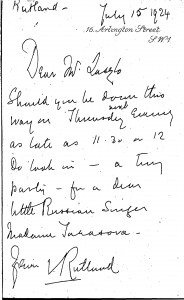 Rutland.
July 15 1924
16, Arlington Street
S.W.1
Dear Mr Laszlo
Should you be down this
way on Thursday next Evening
as late as 11.30 or 12
Do look in — a tiny
party — for a dear
little Russian Singer
Madame Tarasova —
V Rutland